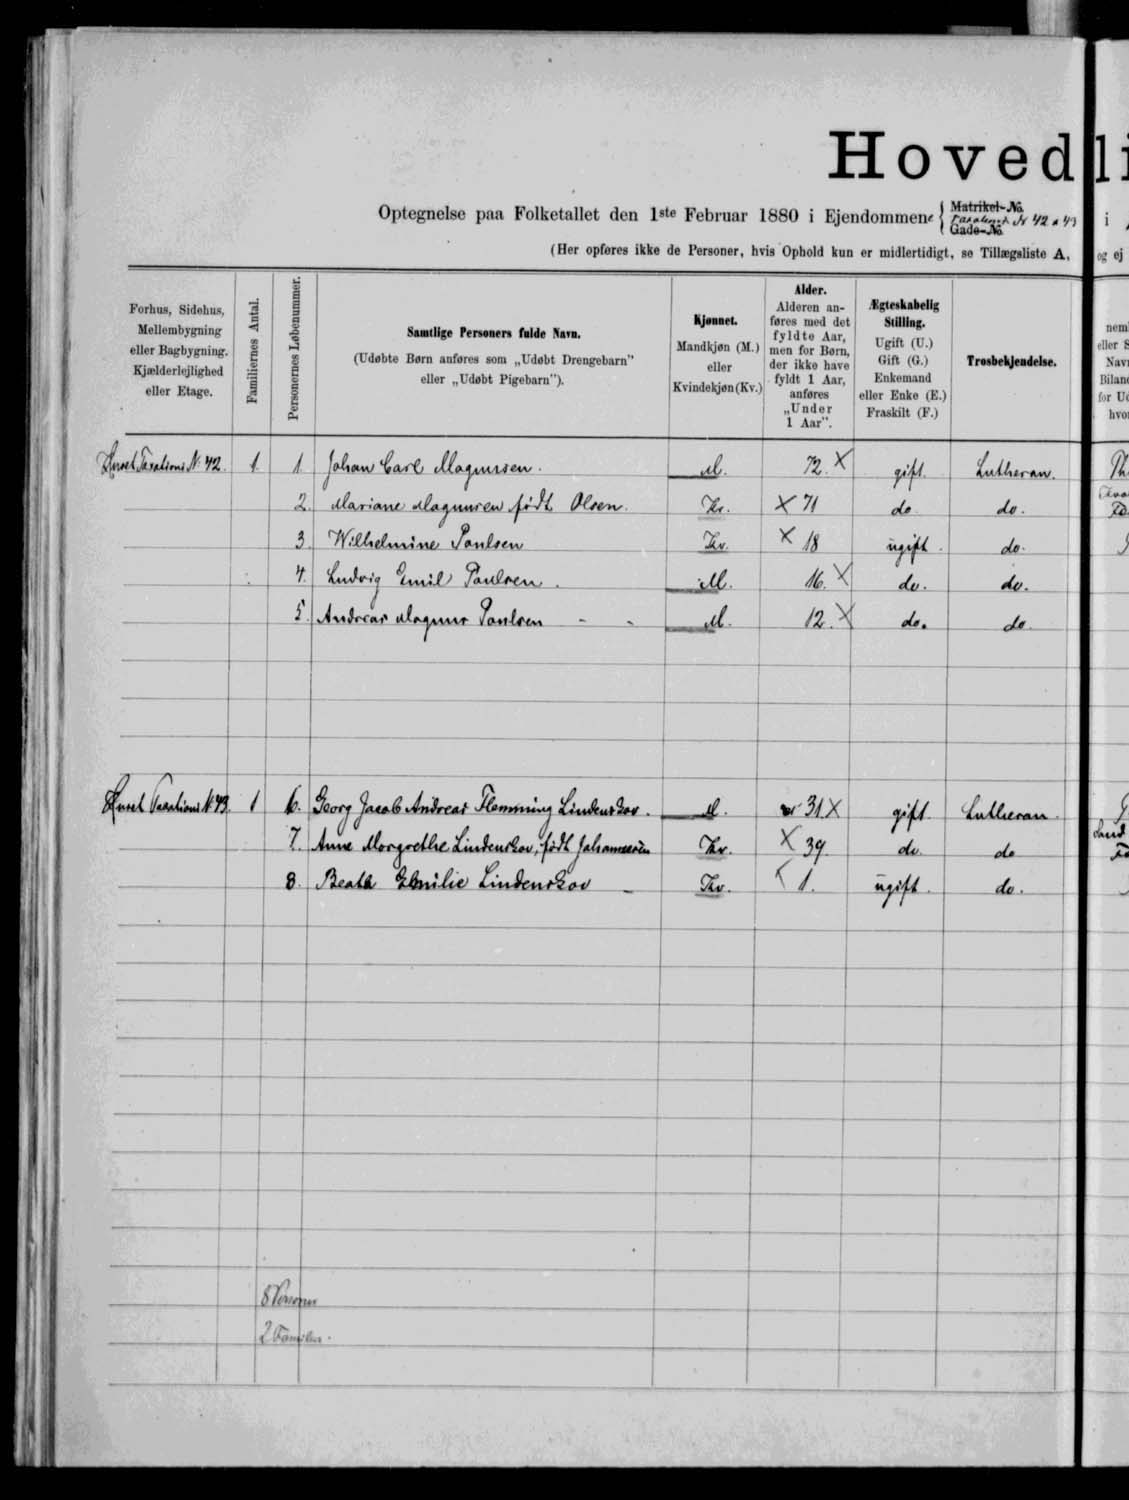 Hovedli
Optegnelse paa Folketallet den 1ste Februar 1880 i Ejendommene { Matrikel-No. Taxations No 42 & 43 Gade-No. i
(Her opføres ikke de Personer, hvis Ophold kun er midlertidigt, se Tillægsliste A, og ej
Forhus, Sidehus, Mellembygning eller Bagbygning. Kjælderlejlighed eller Etage.
Familiernes Antal.
Personernes Løbenummer.
Samtlige Personers fulde Navn.
(Udøbte Børn anføres som „Udøbt Drengebarn” eller „Udøbt Pigebarn”).
Kjønnet. Mandkjøn (M.) eller Kvindekjøn (Kv.)
Alder. Alderen anføres med det fyldte Aar, men for Børn, der ikke have fyldt 1 Aar, anføres „Under 1 Aar”.
Ægteskabelig Stilling. Ugift (U.) Gift (G.) Enkemand eller Enke (E.) Fraskilt (F.)
Trosbekjendelse.
Huset Taxations N. 42. 1. 1. Johan Carl Magnussen. M. 72. X gift. Lutheran.
2. Mariane Magnussen født Olsen. Kv. X 71 do. do.
3. Wilhelmine Poulsen Kv. X 18 ugift. do.
4. Ludvig Emil Poulsen. M. 16. X do. do.
5. Andreas Magnus Poulsen - - M. 12. X do. do.
Huset Taxations N. 43. 1 6. Georg Jacob Andreas Flemming Lindenskov. M. 31 X gift. Lutheran.
7. Anne Margrethe Lindenskov, født Johannesen Kv. X 39. do. do
8. Beata Emilie Lindenskov Kv. 1. ugift. do.
8 Personer
2 Familier.